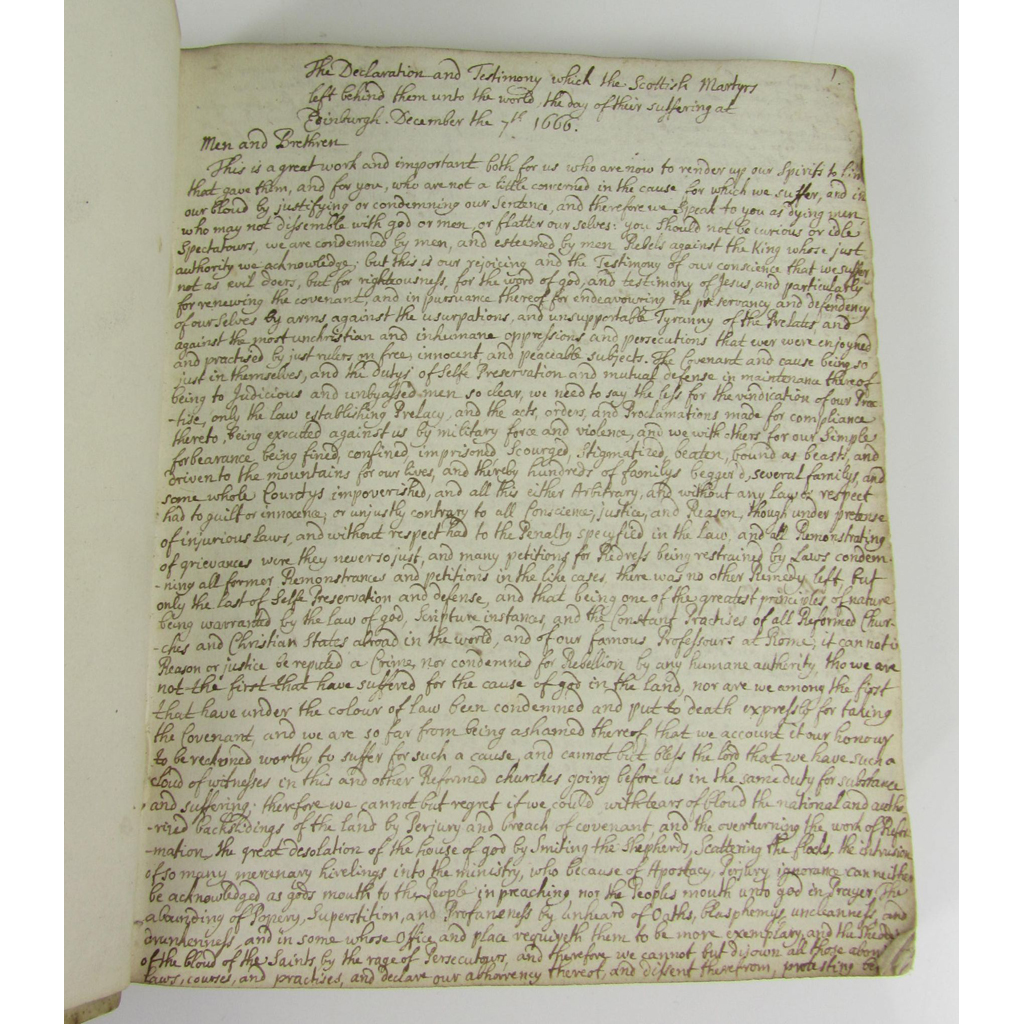 1.
The Declaration and Testimony which the Scottish Martyrs
left behind them unto the world, the day of their suffering at
Edinburgh. December the 7th 1666.
Men and Brethren
This is a great work and important both for us who are now to render up our Spirits to him
that gave them, and for you, who are not a little concerned in the cause for which we suffer, and in
our bloud by justifying or condemning our Sentence, and therefore we Speak to you as dying men,
who may not dissemble with god or men, or flatter our selves: you should not be curious or idle
Spectatours, we are condemned by men, and esteemed by men Rebels against the King whose just
authority we acknowledge; but this is our rejoicing and the Testimony of our conscience that we suffer
not as evil doers, but for righteousness, for the word of god, and testimony of Jesus, and particularly
for renewing the covenant, and in pursuance thereof for endeavouring the preservancy and defendency
of ourselves By arms against the usurpations, and unsupportable Tyranny of the Prelates, and
against the most unchristian and inhumane oppressions and persecutions that ever were enjoyned
and practised by just rulers on free, innocent, and peaceable subjects. The Covenant and cause being so
just in themselves, and the dutys of Selfe Preservation and mutual defense in maintenance thereof
being to Judicious and unbyassed men so clear, we need to say the less for the vindication of our Prac
-tise, only the law establishing Prelacy, and the acts, orders, and Proclamations made for compliance
thereto, being executed against us by military force and violence, and we with others for our Simple
forbearance being fined, confined, imprisoned, Scourged, Stigmatized, beaten, bound as beasts, and
driven to the mountains for our lives, and thereby hundreds of familys begger'd, several familys, and
some whole Countrys impoverished, and all this either Arbitrary, and without any law; respect
had to guilt or innocence; or unjustly contrary to all Conscience, justice, and Reason, though under pretense
of injurious laws, and without respect had to the Penalty specyfied in the law, and all Remonstrating
of grievances were they never so just, and many petitions for Redress being restrained by Laws condem-
-ning all former Remonstrances and petitions in the like cases, there was no other Remedy left, but
only the last of Selfe Preservation and defense, and that being one of the greatest principles of nature
being warranted by the law of god, Scripture instances, and the Constant Practises of all Reformed Chur-
-ches and Christian States abroad in the world, and of our famous Professours at Rome; it can not i
Reason or justice be reputed a Crime, nor condemned for Rebellion by any humane authority, tho we are
not the first that have suffered for the cause of god in the land, nor are we among the first
that have under the colour of law been condemned and put to death expressly for taking
the Covenant, and we are so far from being ashamed thereof, that we account it our honour
to be reckoned worthy to suffer for such a cause, and cannot but bless the lord that we have such a
cloud of witnesses in this and other Reformed churches going before us in the same duty for substance
and suffering: therefore we cannot but regret if we could with tears of bloud the national and autho
-rized backslidings of the land by Perjury and breach of covenant, and the overturning the work of Refor
-mation, the great desolation of the house of god by Smiting the Shepherds, Scattering the flocks, the intrusion
of so many mercenary hirelings into the ministry, who because of Apostacy, Perjury ignorance can neither
be acknowledged as gods mouth to the People in preaching, nor the Peoples mouth unto god in Prayer, The
abounding of Popery, Superstition, and Profaneness by unheard of Oaths, blasphemys, uncleanness, and
drunkenness, and in some whose Office and place requireth them to be more exemplary, and the
of the bloud of the Saints by the rage of Persecutors, and therefore we cannot but disown all those abom
laws, courses, and practises, and declare our abhorrency thereof, and dissent therefrom, protesting be